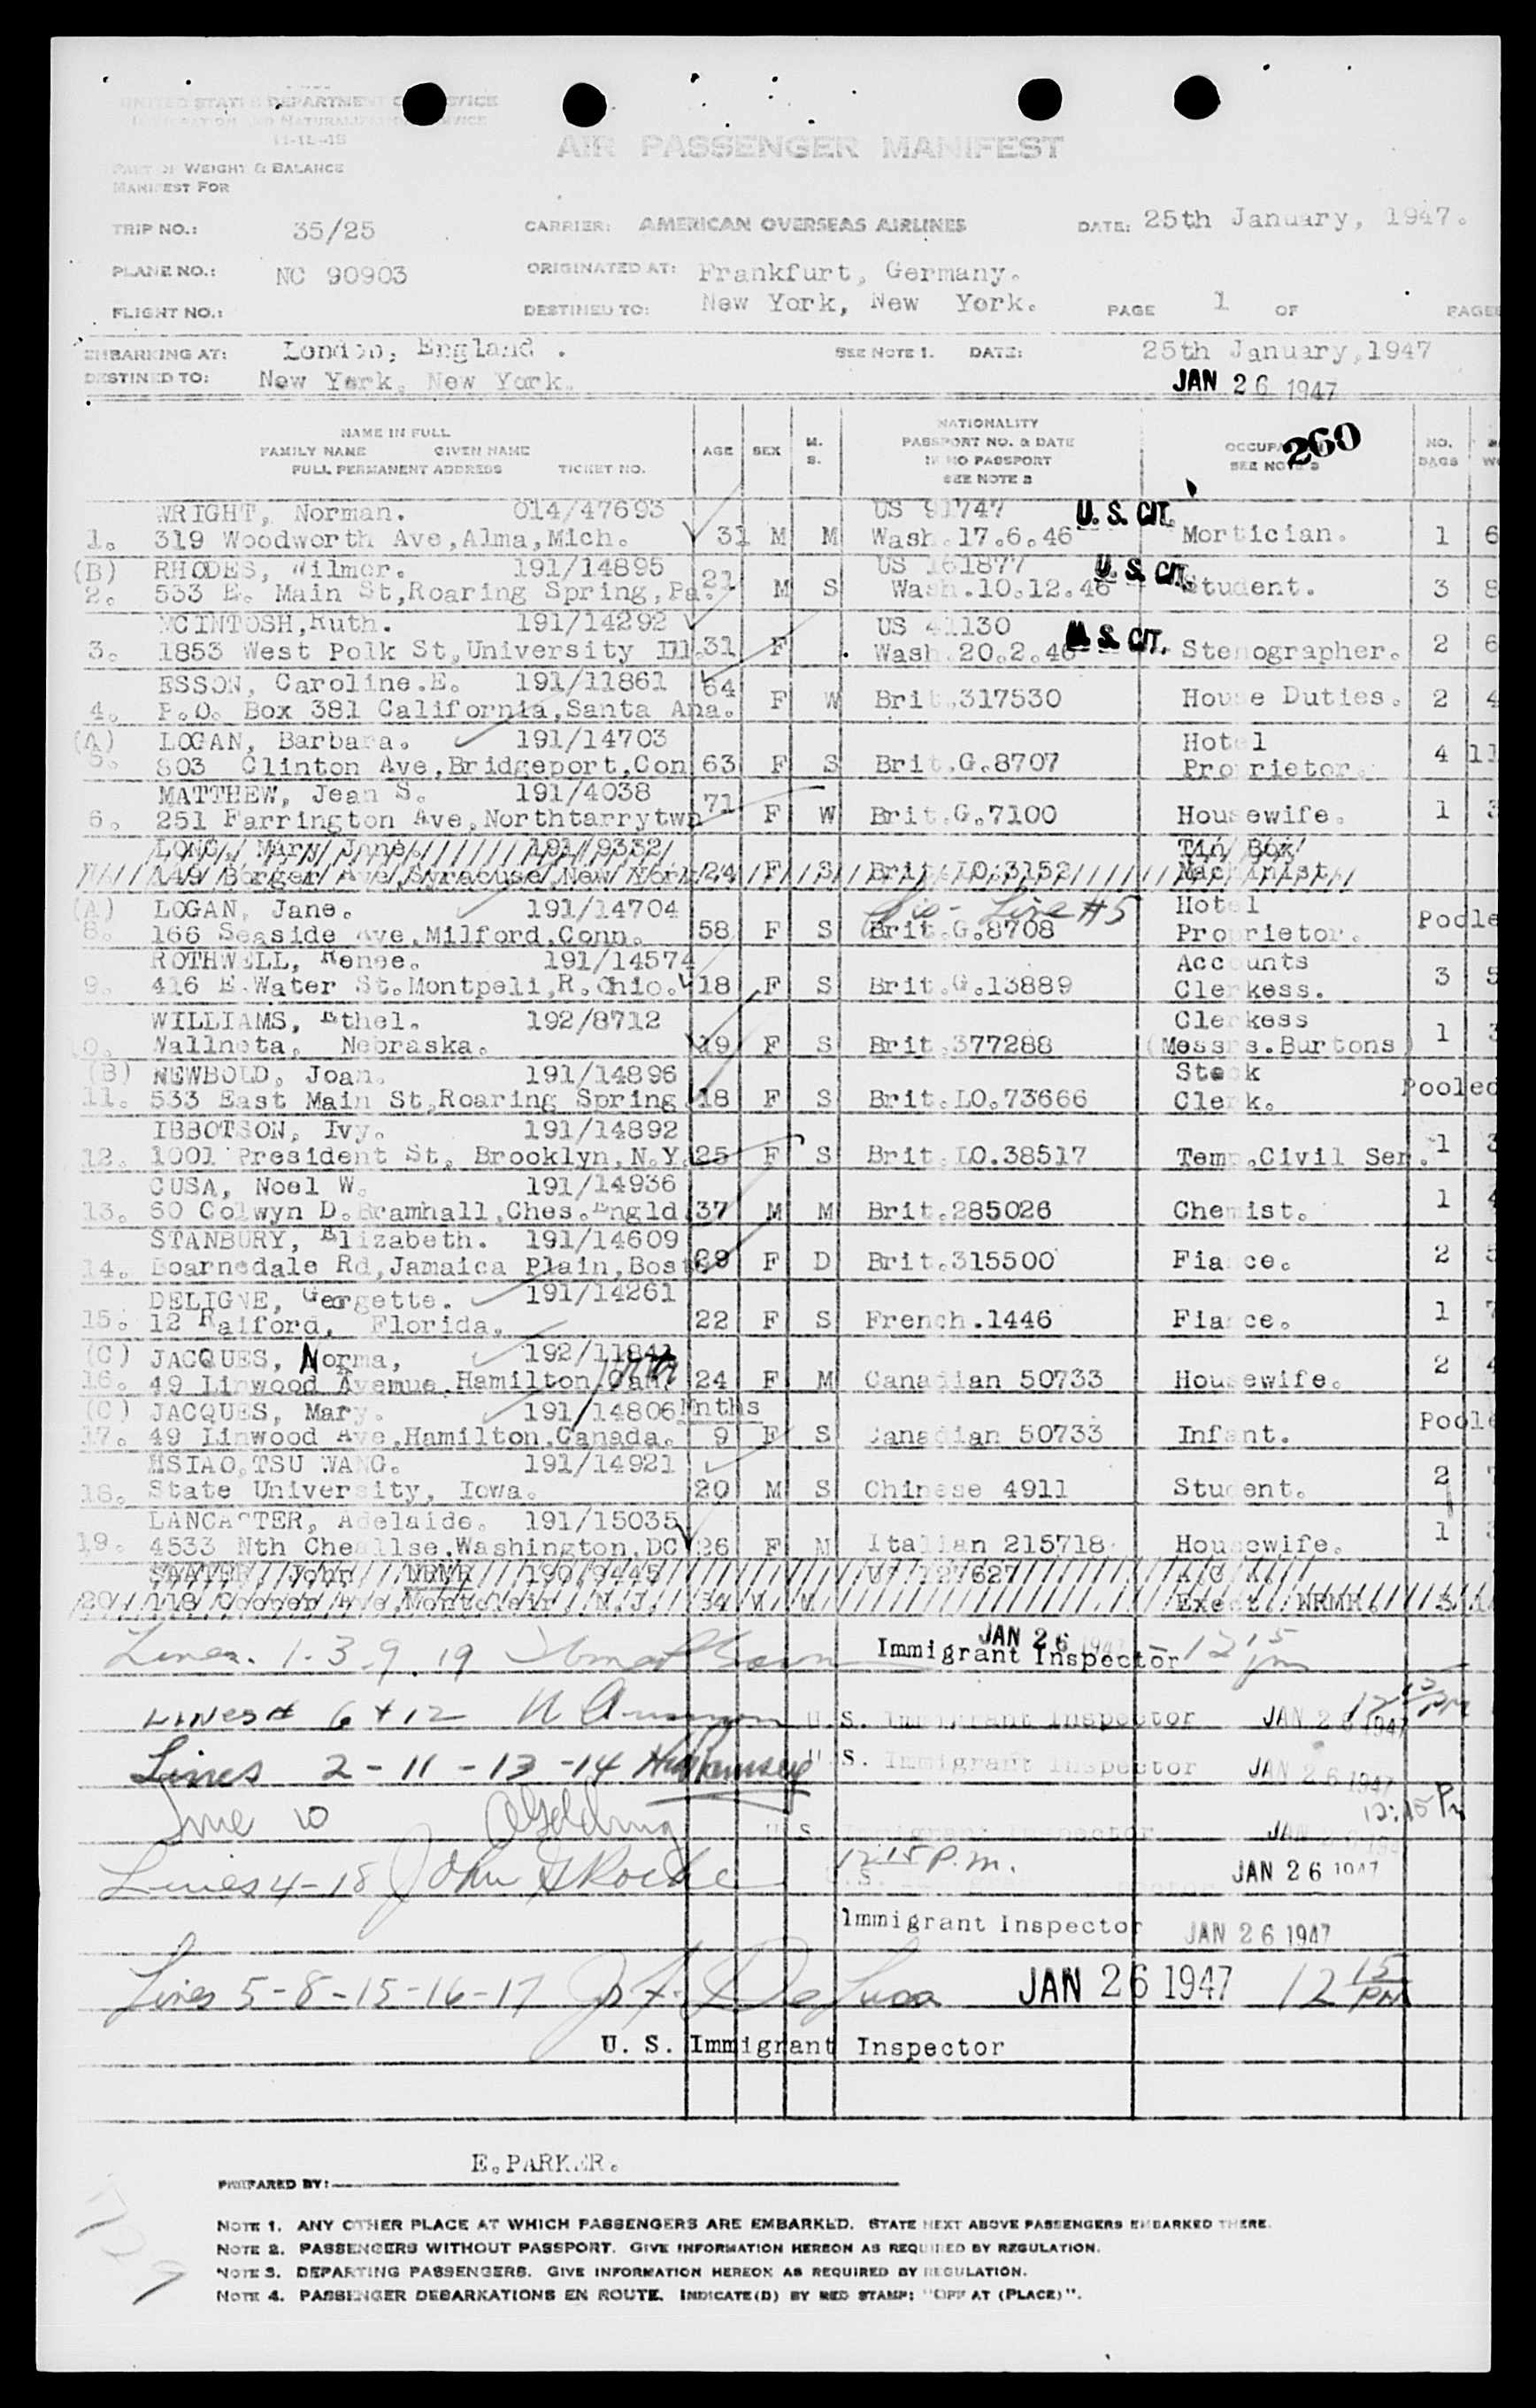 UNITED STATES DEPARTMENT OF JUSTICE
IMMIGRATION AND NATURALIZATION SERVICE
AIR PASSENGER MANIFEST
PART OF WEIGHT & BALANCE
MANIFEST FOR
TRIP NO.: 35/25 CARRIER: AMERICAN OVERSEAS AIRLINES DATE: 25th January, 1947.
PLANE NO.: NC 90903 ORIGINATED AT: Frankfurt, Germany.
FLIGHT NO.: DESTINED TO: New York, New York. PAGE 1 OF PAGES
EMBARKING AT: London, England . SEE NOTE 1. DATE: 25th January,1947
DESTINED TO: New York, New York. JAN 26 1947
260
NAME IN FULL
FAMILY NAME GIVEN NAME
FULL PERMANENT ADDRESS TICKET NO.
AGE SEX M. S.
NATIONALITY
PASSPORT NO. & DATE
IF NO PASSPORT
SEE NOTE 2
OCCUPA
SEE NOTE 3
NO. BAGS
WRIGHT, Norman. 014/47693 US 91747 U. S. CIT.
1. 319 Woodworth Ave,Alma,Mich. 31 M M Wash.17.6.46 Mortician. 1 6
(B) RHODES, Wilmer. 191/14895 US 161877 U. S. CIT.
2. 533 E. Main St,Roaring Spring,Pa. 21 M S Wash.10.12.46 Student. 3 8
MCINTOSH,Ruth. 191/14292 US 41130 U. S. CIT.
3. 1853 West Polk St,University Ill. 31 F Wash.20.2.46 Stenographer. 2 6
ESSON, Caroline.E. 191/11861
4. P.O. Box 381 California,Santa Ana. 64 F W Brit.317530 House Duties. 2 4
(A) LOGAN, Barbara. 191/14703 Hotel
5. 803 Clinton Ave,Bridgeport,Con 63 F S Brit.G.8707 Proprietor. 4 11
MATTHEW, Jean S. 191/4038
6. 251 Farrington Ave,Northtarrytwn 71 F W Brit.G.7100 Housewife. 1 3
LONG, Mary Jane. 191/9332 Tin Box
149 Borger Ave,Syracuse,New York 24 F S Brit.LO.3152 Machinist
(A) LOGAN, Jane. 191/14704 Sis - Line #5 Hotel
8. 166 Seaside Ave,Milford,Conn. 58 F S Brit.G.8708 Proprietor. Poole
ROTHWELL, Renee. 191/14574 Accounts
9. 416 E.Water St.Montpeli,R.Ohio. 18 F S Brit.G.13889 Clerkess. 3 5
WILLIAMS, Ethel. 192/8712 Clerkess
10. Wallneta, Nebraska. 19 F S Brit.377288 (Messrs.Burtons) 1 3
(B) NEWBOLD, Joan. 191/14896 Stock
11. 533 East Main St,Roaring Spring 18 F S Brit.LO.73666 Clerk. Pooled
IBBOTSON, Ivy. 191/14892
12. 1001 President St, Brooklyn,N.Y. 25 F S Brit.LO.38517 Temp.Civil Ser. 1 3
CUSA, Noel W. 191/14936
13. 50 Colwyn D.Bramhall,Ches.Engld 37 M M Brit.285026 Chemist. 1 4
STANBURY, Elizabeth. 191/14609
14. Boarnedale Rd,Jamaica Plain,Bost 29 F D Brit.315500 Fiance. 2 5
DELIGNE, Georgette. 191/14261
15. 12 Raiford, Florida. 22 F S French.1446 Fiance. 1 7
(C) JACQUES, Norma, 192/11841
16. 49 Linwood Avenue,Hamilton,Can. 24 F M Canadian 50733 Housewife. 2 4
(C) JACQUES, Mary. 191/14806 Mnths
17. 49 Linwood Ave,Hamilton,Canada. 9 F S Canadian 50733 Infant. Poole
HSIAO,TSU WANG. 191/14921
18. State University, Iowa. 20 M S Chinese 4911 Student. 2 7
LANCASTER, Adelaide. 191/15035
19. 4533 Nth Cheallse,Washington,DC 26 F M Italian 215718 Housewife. 1 3
John WRMR 190/9445 127627
20 118 Cooper Ave,Montclair, N.J. 34 M M Exect. WRMR. 3
Lines. 1-3-9.19 JAN 26 1947 Immigrant Inspector 12 15 pm
LINES # 6 + 12 U. S. Immigrant Inspector JAN 26 1947 12 15 PM
Lines 2 - 11 - 13 - 14 U. S. Immigrant Inspector JAN 26 1947
Line 10 U. S. Immigrant Inspector JAN 12:15 Pm
Lines 4-18 John 12 15 P.m. JAN 26 1947
Immigrant Inspector JAN 26 1947
Lines 5-8-15-16-17 J. F. De Luca JAN 26 1947 12 15 PM
U. S. Immigrant Inspector
E.PARKER.
PREPARED BY:
NOTE 1. ANY OTHER PLACE AT WHICH PASSENGERS ARE EMBARKED. STATE NEXT ABOVE PASSENGERS EMBARKED THERE.
NOTE 2. PASSENGERS WITHOUT PASSPORT. GIVE INFORMATION HEREON AS REQUIRED BY REGULATION.
NOTE 3. DEPARTING PASSENGERS. GIVE INFORMATION HEREON AS REQUIRED BY REGULATION.
NOTE 4. PASSENGER DEBARKATIONS EN ROUTE. INDICATE(D) BY RED STAMP: "OFF AT (PLACE)".